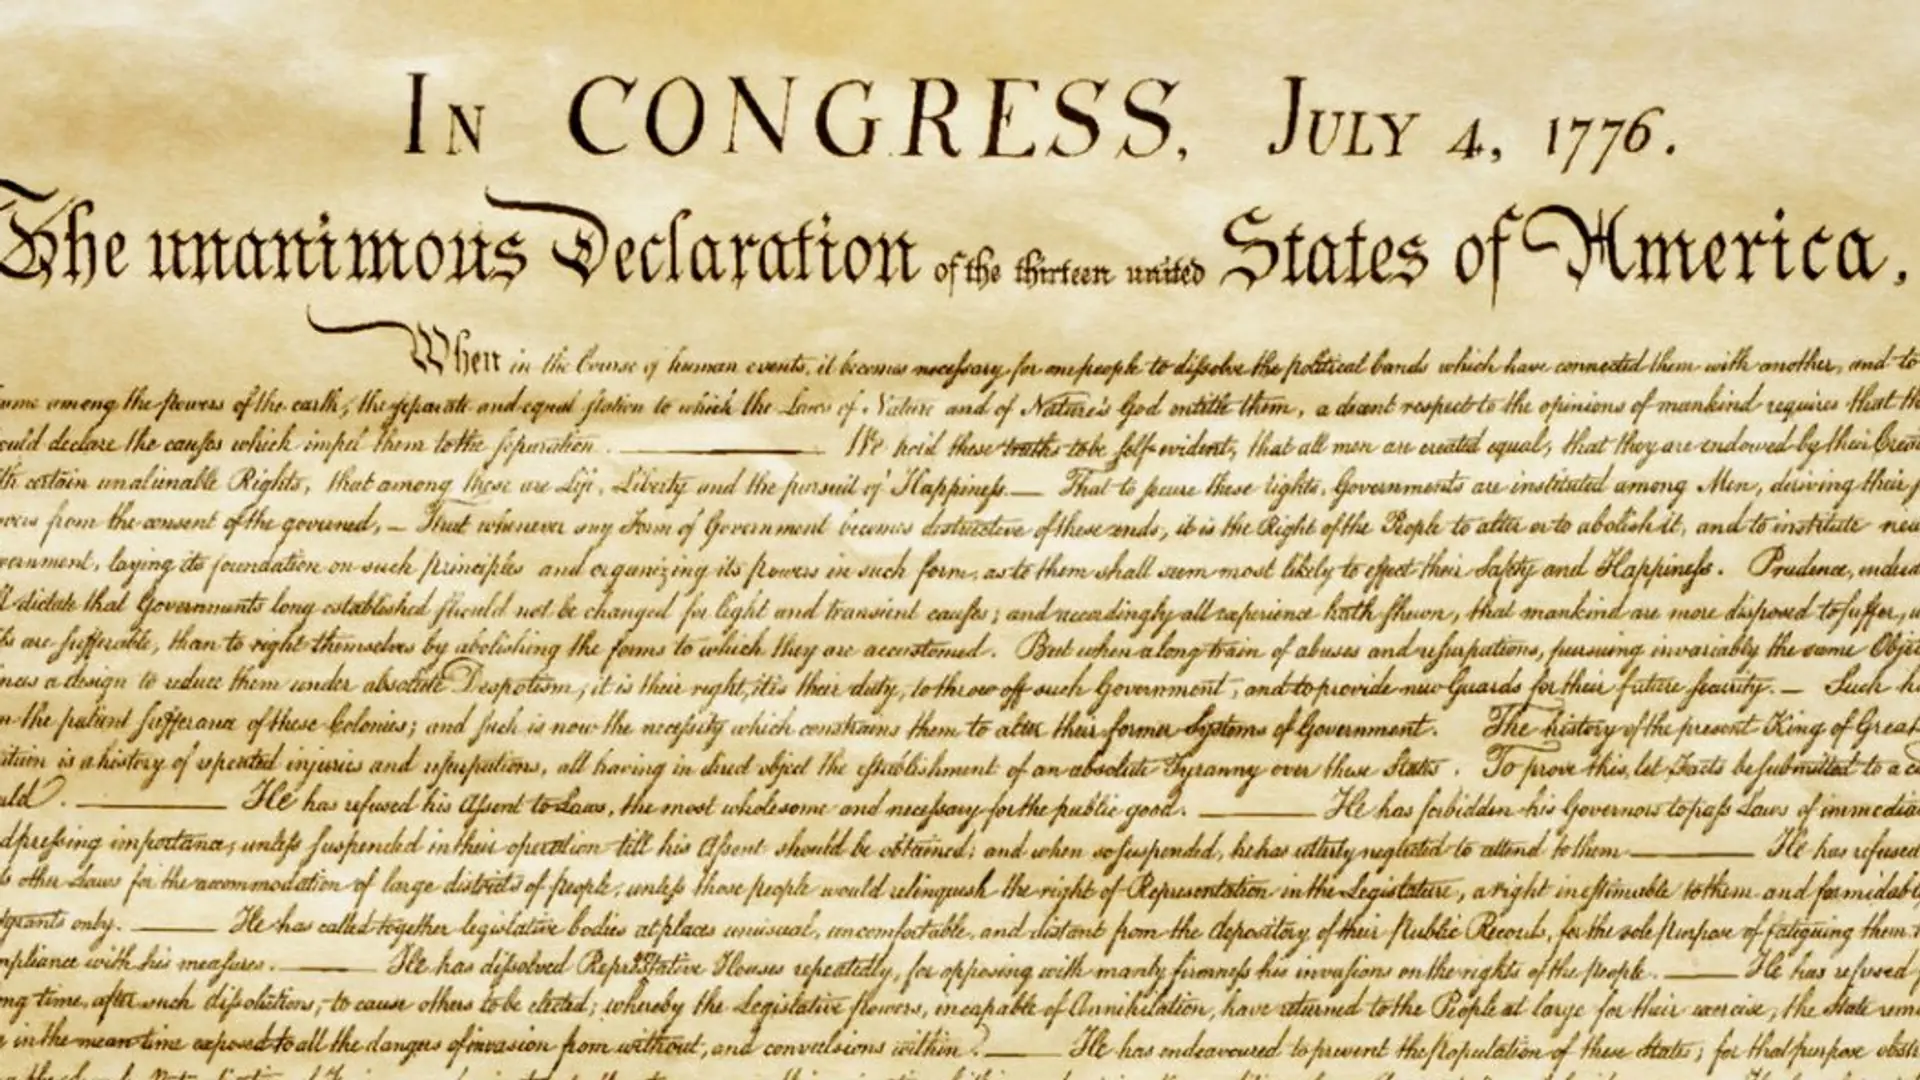 In CONGRESS, July 4, 1776.
The unanimous Declaration of the thirteen united States of America,
When in the Course of human events, it becomes necessary for one people to dissolve the political bands which have connected them with another, and to
among the powers of the earth, the separate and equal station to which the Laws of Nature and of Nature's God entitle them, a decent respect to the opinions of mankind requires that th
ould declare the causes which impel them to the separation. ——— We hold these truths to be self-evident, that all men are created equal, that they are endowed by their Crea
th certain unalienable Rights, that among these are Life, Liberty and the pursuit of Happiness.— That to secure these rights, Governments are instituted among Men, deriving their j
wers from the consent of the governed, — That whenever any Form of Government becomes destructive of these ends, it is the Right of the People to alter or to abolish it, and to institute new
vernment, laying its foundation on such principles and organizing its powers in such form, as to them shall seem most likely to effect their Safety and Happiness. Prudence, indeed
ll dictate that Governments long established should not be changed for light and transient causes; and accordingly all experience hath shewn, that mankind are more disposed to suffer, w
ls are sufferable, than to right themselves by abolishing the forms to which they are accustomed. But when a long train of abuses and usurpations, pursuing invariably the same Objec
nces a design to reduce them under absolute Despotism, it is their right, it is their duty, to throw off such Government, and to provide new Guards for their future security. — Such h
n the patient sufferance of these Colonies; and such is now the necessity which constrains them to alter their former Systems of Government. The history of the present King of Great
ritain is a history of repeated injuries and usurpations, all having in direct object the establishment of an absolute Tyranny over these States. To prove this, let Facts be submitted to a c
rld. ——— He has refused his Assent to Laws, the most wholesome and necessary for the public good. ——— He has forbidden his Governors to pass Laws of immedia
d pressing importance, unless suspended in their operation till his Assent should be obtained; and when so suspended, he has utterly neglected to attend to them ——— He has refused
s other Laws for the accommodation of large districts of people, unless those people would relinquish the right of Representation in the Legislature, a right inestimable to them and formidabl
tyrants only. ——— He has called together legislative bodies at places unusual, uncomfortable, and distant from the depository of their Public Records, for the sole purpose of fatiguing them
mpliance with his measures. ——— He has dissolved Representative Houses repeatedly, for opposing with manly firmness his invasions on the rights of the people. ——— He has refused
ng time, after such dissolutions, to cause others to be elected; whereby the Legislative powers, incapable of Annihilation, have returned to the People at large for their exercise; the State rema
in the mean time exposed to all the dangers of invasion from without, and convulsions within. ——— He has endeavoured to prevent the population of these States; for that purpose obstr